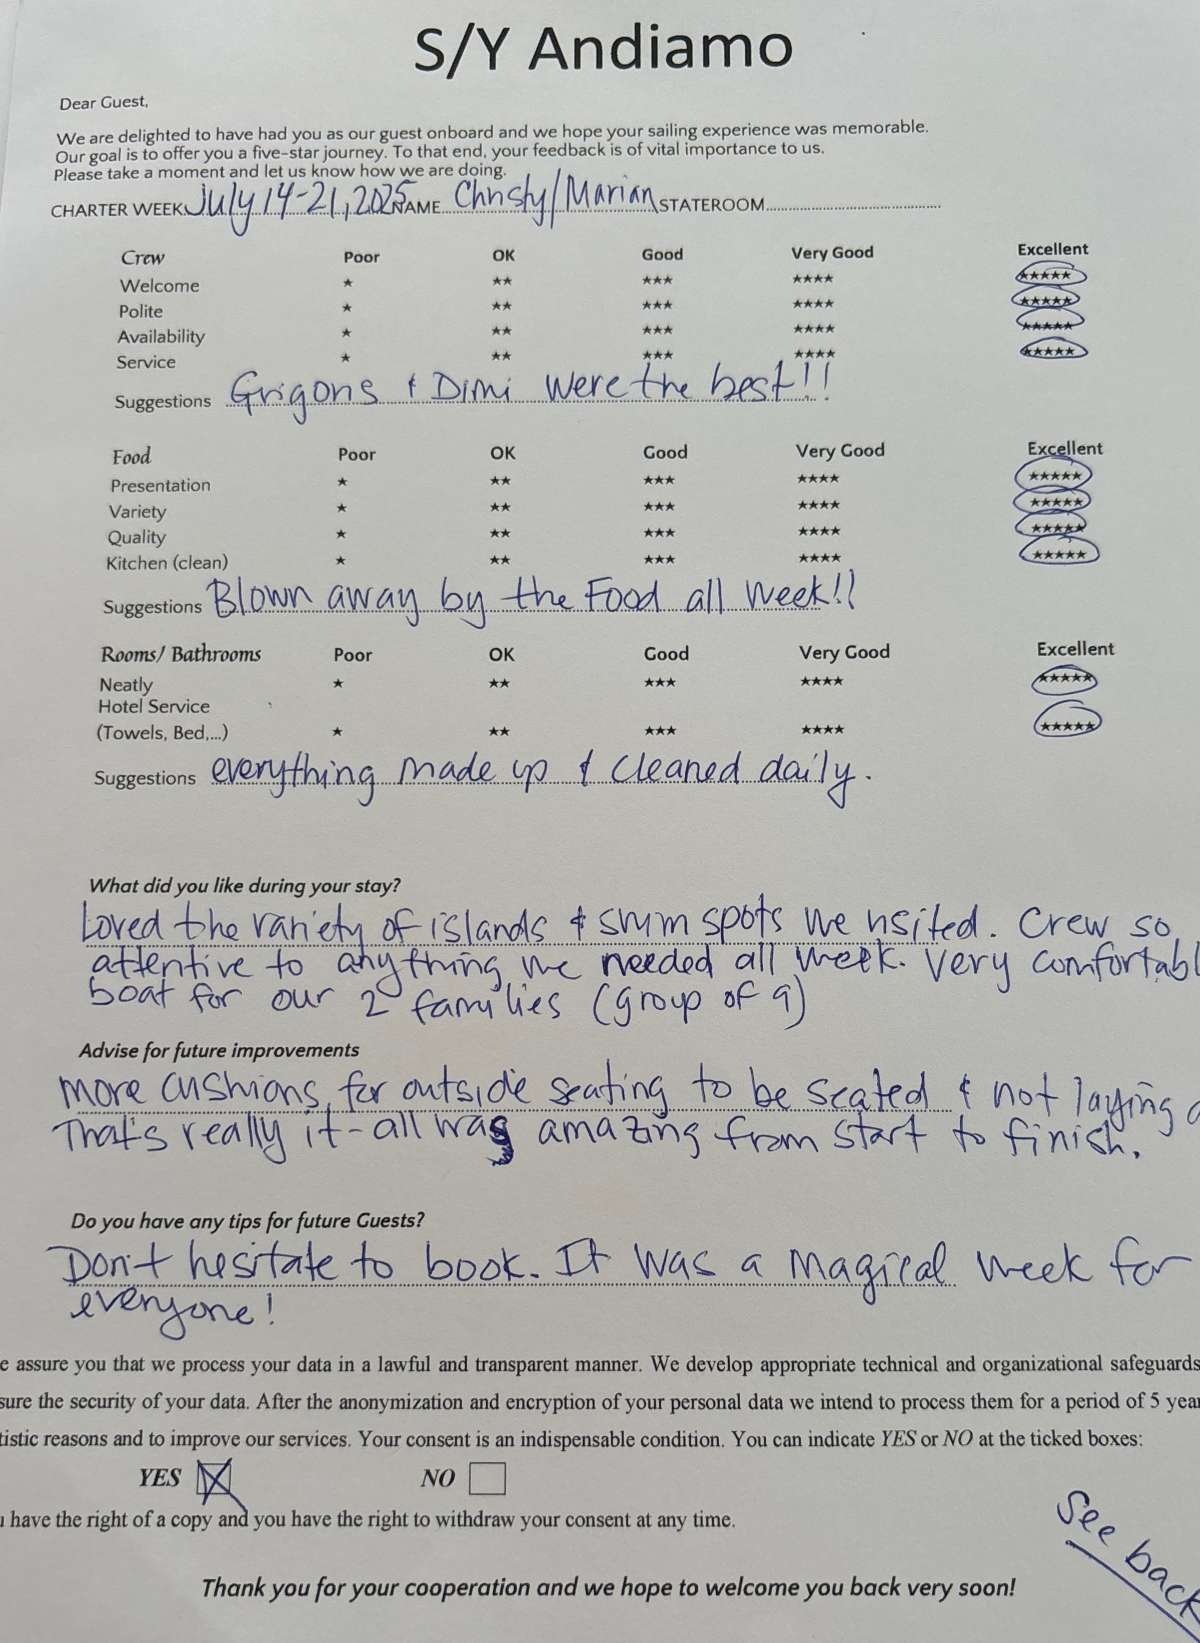 S/Y Andiamo
Dear Guest,
We are delighted to have had you as our guest onboard and we hope your sailing experience was memorable.
Our goal is to offer you a five-star journey. To that end, your feedback is of vital importance to us.
Please take a moment and let us know how we are doing.
CHARTER WEEK July 14-21, 2025 NAME Christy/Marian STATEROOM
Crew Poor OK Good Very Good Excellent
Welcome ★ ★★ ★★★ ★★★★ ★★★★★
Polite ★ ★★ ★★★ ★★★★ ★★★★★
Availability ★ ★★ ★★★ ★★★★ ★★★★★
Service ★ ★★ ★★★ ★★★★ ★★★★★
Suggestions Grigoris & Dimi were the best!!
Food Poor OK Good Very Good Excellent
Presentation ★ ★★ ★★★ ★★★★ ★★★★★
Variety ★ ★★ ★★★ ★★★★ ★★★★★
Quality ★ ★★ ★★★ ★★★★ ★★★★★
Kitchen (clean) ★ ★★ ★★★ ★★★★ ★★★★★
Suggestions Blown away by the Food all week!!
Rooms/ Bathrooms Poor OK Good Very Good Excellent
Neatly ★ ★★ ★★★ ★★★★ ★★★★★
Hotel Service
(Towels, Bed,...) ★ ★★ ★★★ ★★★★ ★★★★★
Suggestions everything made up & cleaned daily.
What did you like during your stay?
Loved the variety of islands & swim spots we visited. Crew so
attentive to anything we needed all week. Very comfortabl
boat for our 2 families (group of 9)
Advise for future improvements
More cushions for outside seating to be seated & not laying d
That's really it - all was amazing from start to finish.
Do you have any tips for future Guests?
Don't hesitate to book. It was a magical week for
everyone!
e assure you that we process your data in a lawful and transparent manner. We develop appropriate technical and organizational safeguards
sure the security of your data. After the anonymization and encryption of your personal data we intend to process them for a period of 5 year
tistic reasons and to improve our services. Your consent is an indispensable condition. You can indicate YES or NO at the ticked boxes:
YES NO
u have the right of a copy and you have the right to withdraw your consent at any time.
See back
Thank you for your cooperation and we hope to welcome you back very soon!